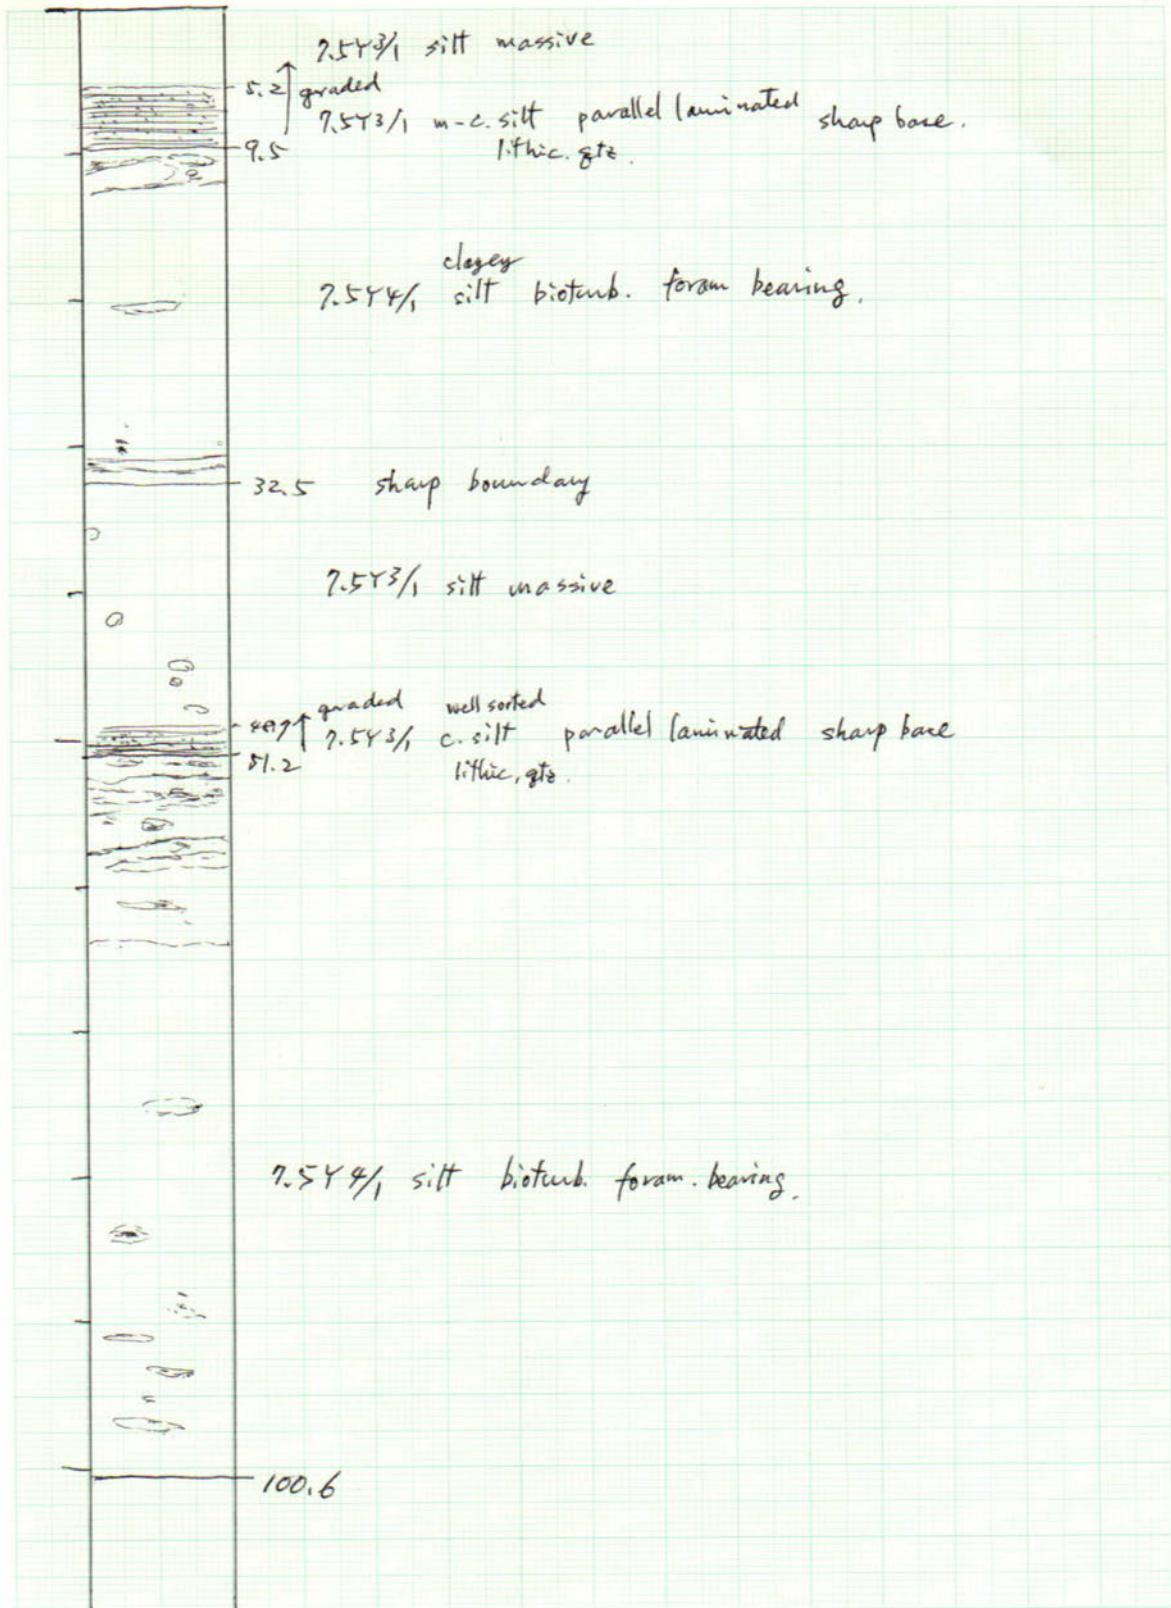 7.5Y3/1 silt massive
5.2 graded
7.5Y3/1 m-c. silt parallel laminated sharp base.
9.5 lithic. qtz.
clayey
7.5Y4/1 silt bioturb. foram bearing.
32.5 sharp boundary
7.5Y3/1 silt massive
graded well sorted
7.5Y3/1 c. silt parallel laminated sharp base
51.2 lithic, qtz.
7.5Y4/1 silt bioturb. foram. bearing.
100.6